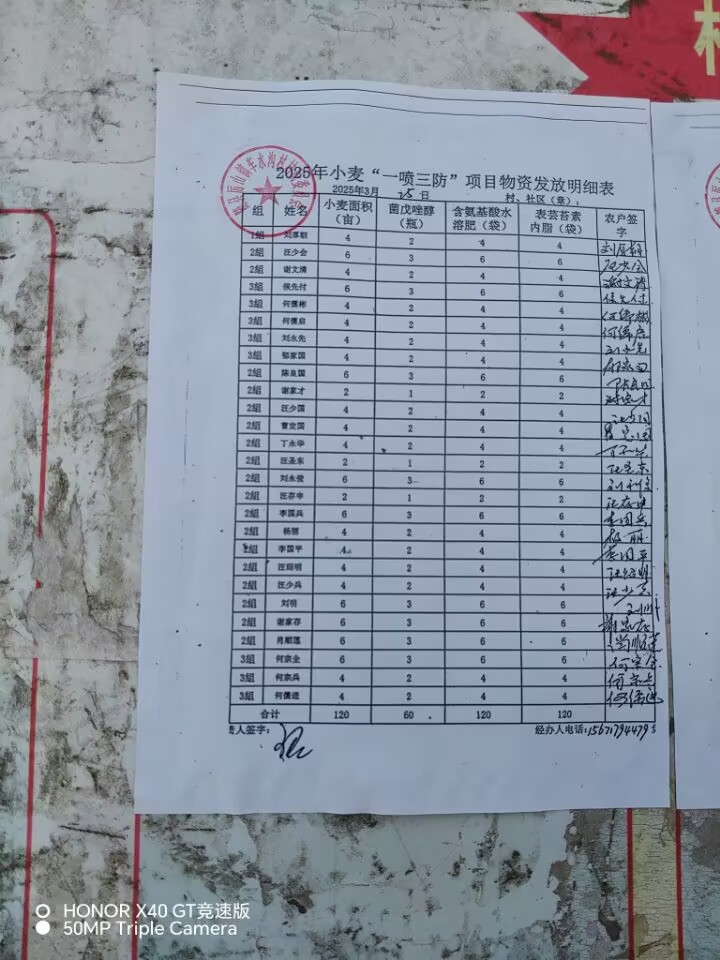 2025年小麦“一喷三防”项目物资发放明细表
2025年3月25日 村、社区（章）：
组 姓名 小麦面积（亩） 菌戊唑醇（瓶） 含氨基酸水溶肥（袋） 表芸苔素内脂（袋） 农户签字
1组 刘厚朝 4 2 4 4
2组 汪少会 6 3 6 6
2组 谢文清 4 2 4 4 谢文清
3组 侯先付 6 3 6 6 侯先付
3组 何儒彬 4 2 4 4
3组 何儒启 4 2 4 4
3组 刘永先 4 2 4 4
3组 郁家国 4 2 4 4
2组 陈良国 6 3 6 6
2组 谢家才 2 1 2 2
2组 汪少国 4 2 4 4 汪少国
2组 曹宏国 4 2 4 4
2组 丁永华 4 2 4 4
2组 汪圣东 2 1 2 2
2组 刘永俊 6 3 6 6
2组 汪存申 2 1 2 2
2组 李国兵 6 3 6 6 李国兵
2组 杨丽 4 2 4 4 杨丽
2组 李国平 4 2 4 4 李国平
2组 汪绍明 4 2 4 4 汪绍明
2组 汪少兵 4 2 4 4 汪少兵
2组 刘明 6 3 6 6
2组 谢家存 6 3 6 6 谢家存
2组 肖顺莲 6 3 6 6
3组 何宗全 6 3 6 6 何宗全
3组 何宗兵 4 2 4 4 何宗兵
3组 何儒进 4 2 4 4 何儒进
合计 120 60 120 120
责人签字： 经办人电话：15671794479
HONOR X40 GT竞速版
50MP Triple Camera